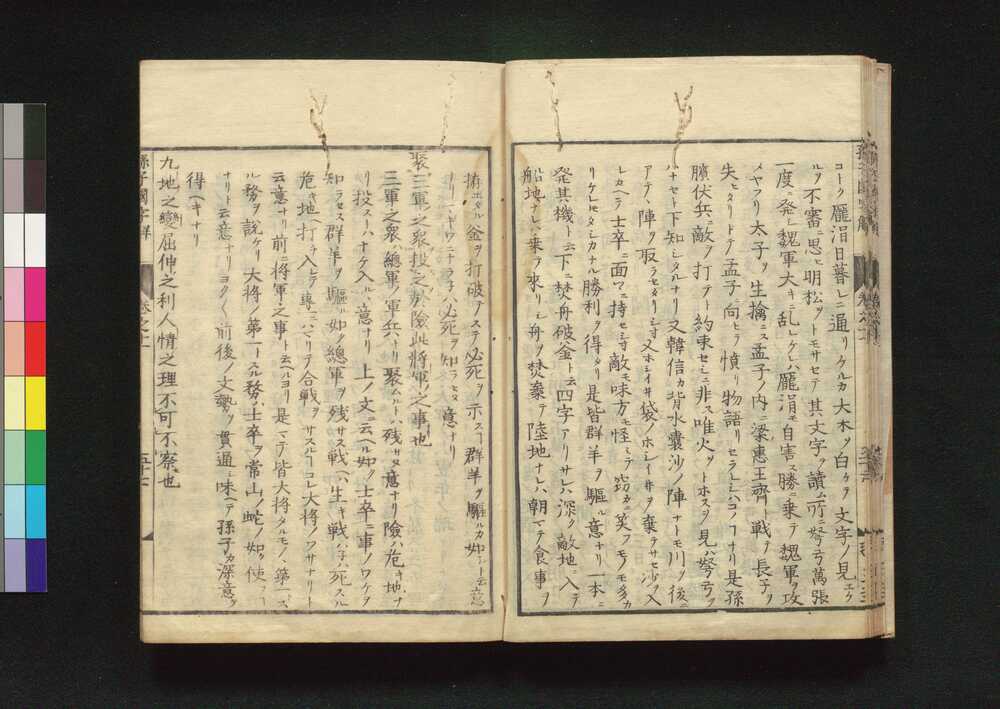 コーク龐涓日暮レニ通リケルカ大木ノ白ケヲ文字ノ見エケ
ルヲ不審ニ思ヒ明松ヲトモサセテ其文字ヲ讀ム所ニ弩弓萬張
一度ニ発シ魏軍大キニ乱レケレハ龐涓モ自害ス勝ニ乗テ魏軍ヲ攻
メヤフリ太子ヲ生擒ニス孟子ノ内ニ梁惠王齊ト戦テ長子ヲ
失ヒタリトテ孟子ニ向ヒテ憤リ物語リセラレシハコノコナリ是孫
臏伏兵ニ敵ヲ打テト約束セシニ非ス唯火ヲトホスヲ見ハ弩弓ヲ
ハナセト下知シタルナリ又韓信カ背水囊沙ノ陣ナトモ川ヲ後ニ
アテヽ陣ヲ取ラセタリシ寸又ホシイ井袋ノホシイ井ヲ棄テサセ沙ヲ入
レカヘテ士卒ニ面々ニ持セシ寸敵モ味方モ怪シミテ窃カニ笑フモノモ多カ
リケレヒタシカナル勝利ヲ得タリ是皆群羊ヲ驅ル意ナリ一本ニ
発其機ト云下ニ焚舟破釜ト云四字アリサレハ深ク敵地ニ入テ
船地ナレハ乗テ來リシ舟ヲ焚棄テ陸地ナレハ朝マテ食事ヲ
拵エタル釜ヲ打破テステ必死ヲ示スコ群羊ヲ驅ルカ如シト云意
ナリ
聚三軍之衆投之於險此將軍之事也
三軍之衆ハ總軍ノ軍兵ナリ聚ムルトハ残サヌ意ナリ險ハ危キ地ナ
リ投ストハナケ入ル意ナリ上ノ文ニ云ヘル如ク士卒ニ事ノワケヲ
知ラセス群羊ヲ驅ル如ク總軍ヲ残サス戦ハハ生キ戦ハ子ハ死スル
危キ地ヘ打チ入レテ專一ニハマリテ合戦ヲサスルココレ大将ノワサナリト
云意ナリ前ニ将軍之事ト云ヘルヨリ是マテ皆大将タルモノヽ第一ニス
ル務ヲ説ケリ大将ノ第一トスル務ハ士卒ヲ常山ノ蛇ノ如ク使フニ
ナリト云意ナリヨク〱前後ノ文勢ヲ貫通シ味ヘテ孫子カ深意ヲ
得ヘキナリ
九地之變屈伸之利人情之理不可不察也
孫子國字解
卷之十一
五十七